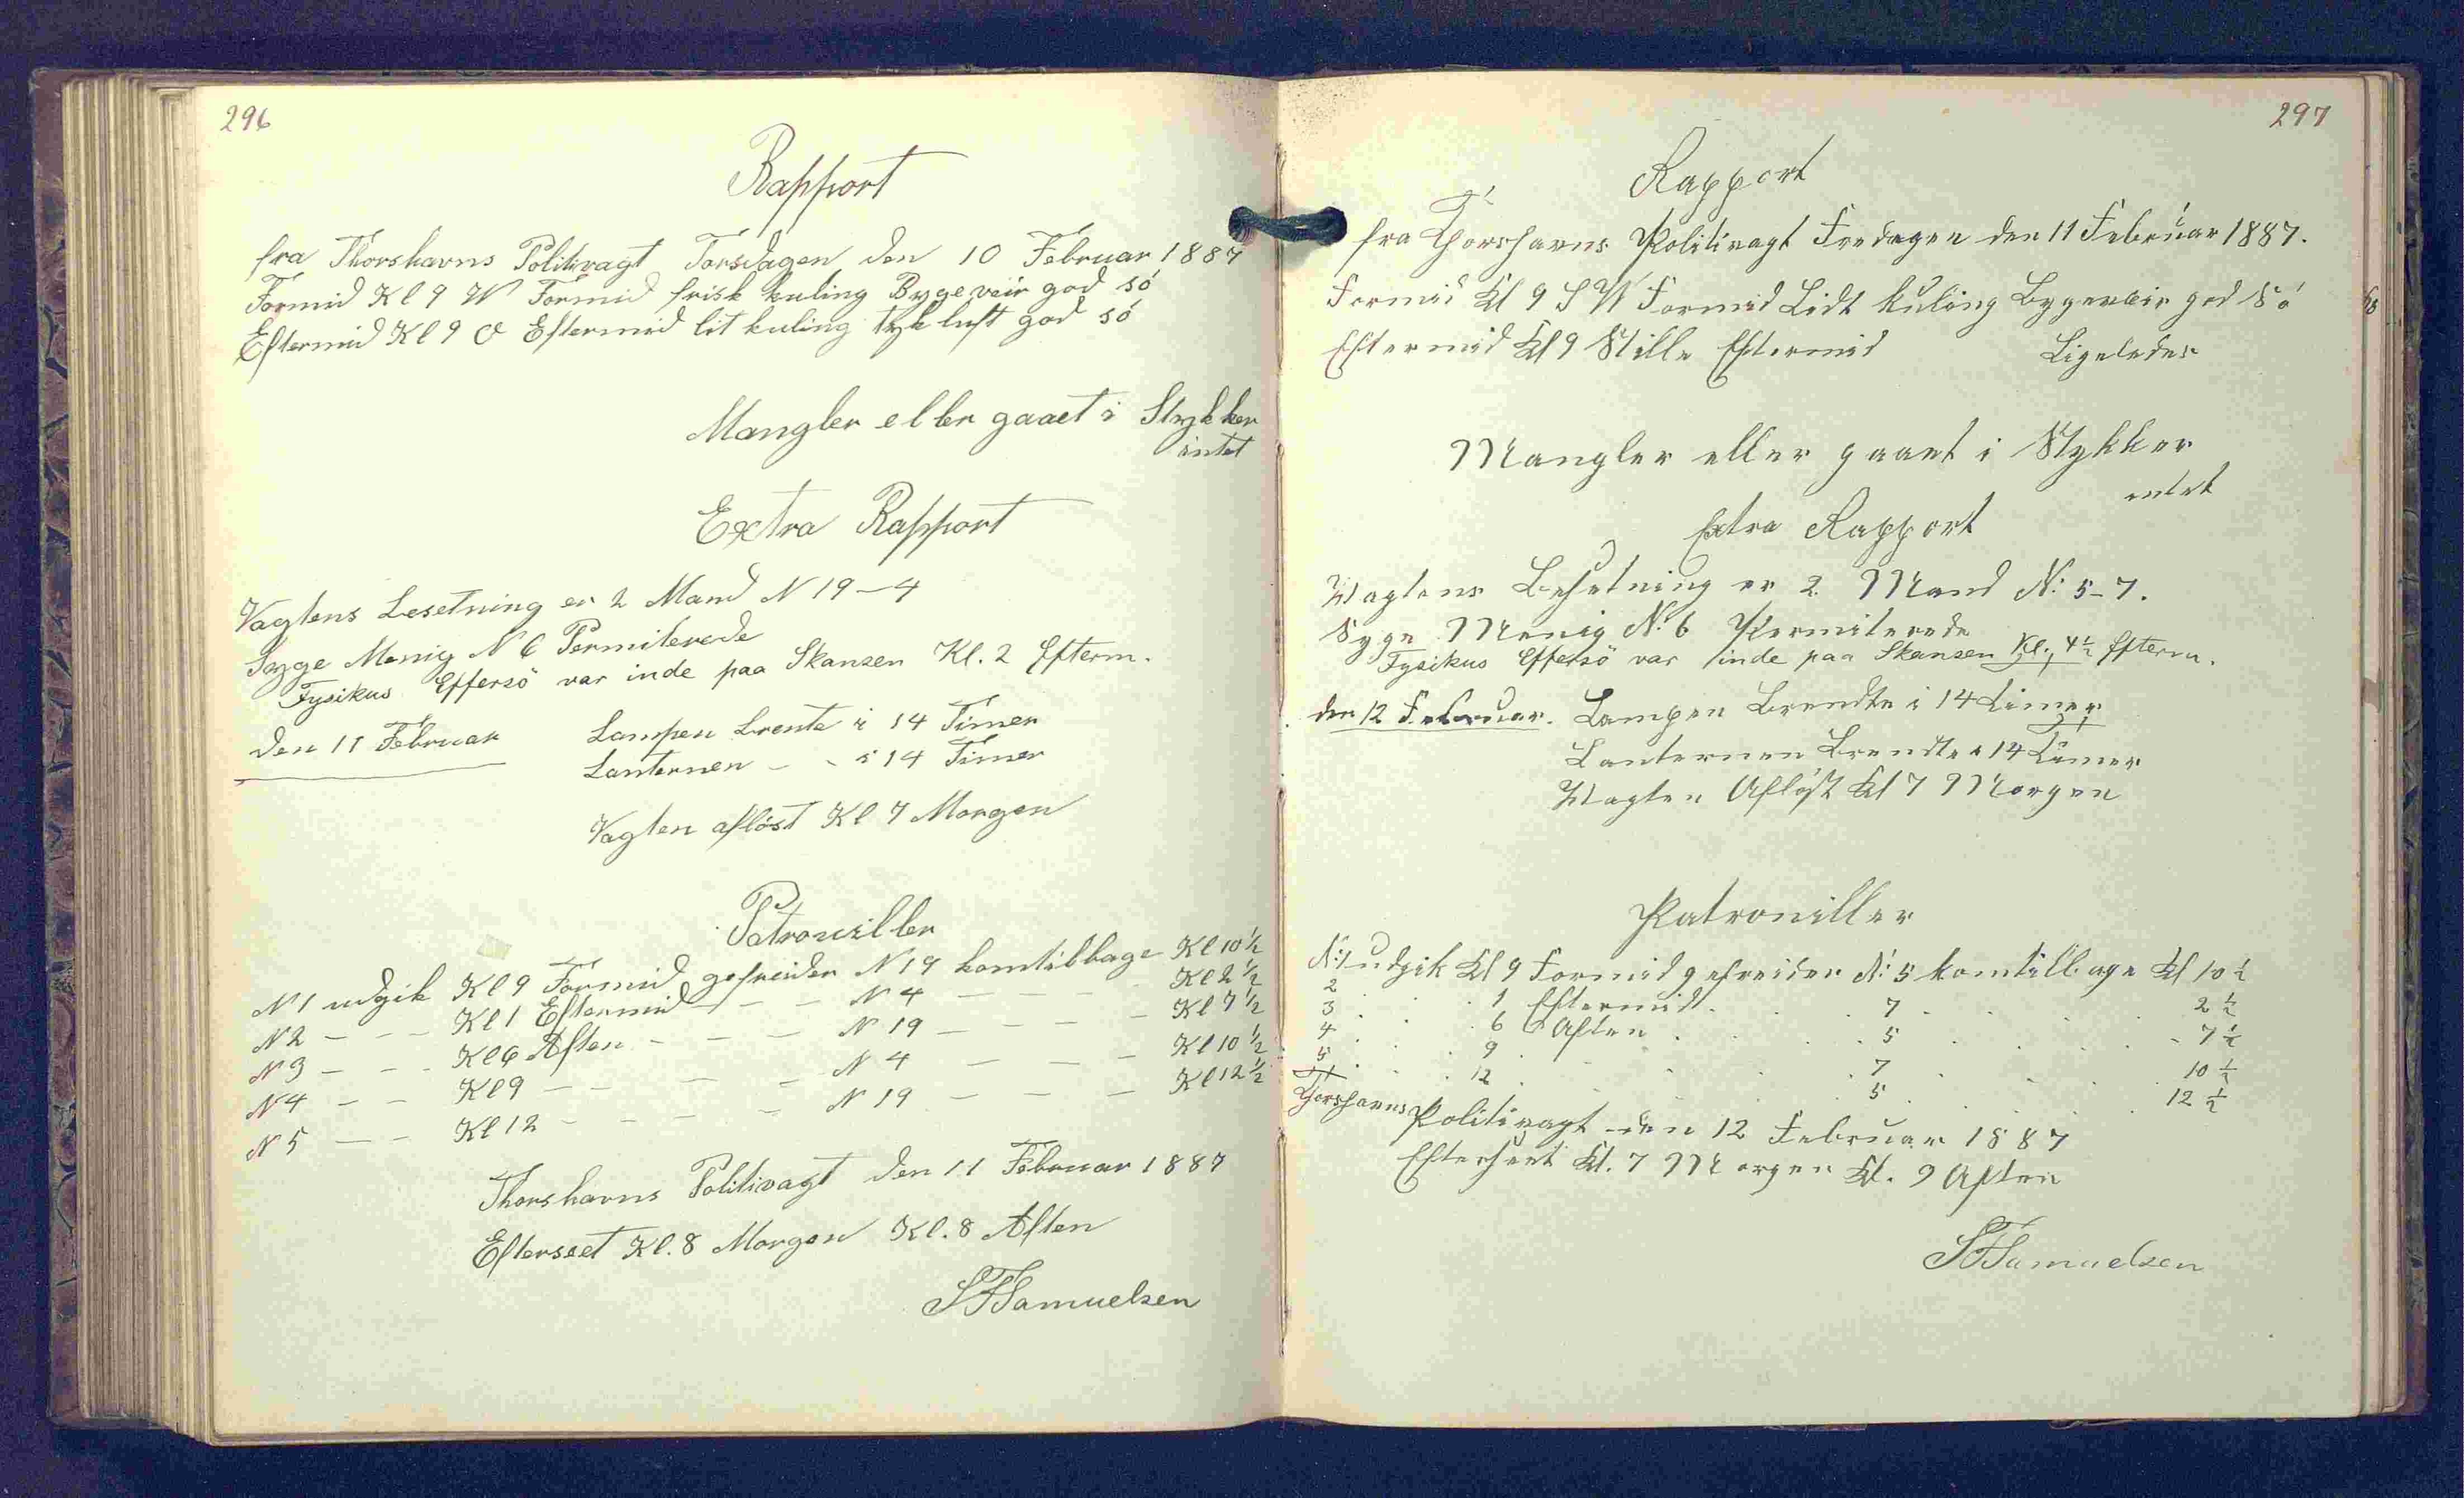 296
Rapport
fra Thorshavns Politivagt Torsdagen den 10 Februar 1887
Formid Kl 9 W Formid frisk kuling Bygeveir god sö
Eftermid Kl 9 O Eftermid lit kuling tyk luft god sö
Mangler eller gaaet i Stykker
intet
Extra Rapport
Vagtens besetning er 2 Mand N 19-4
Syge Menig N 6 Permiterede
Fysikus Effersö var inde paa Skansen Kl. 2 Efterm.
den 11 Februar Lampen brente i 14 Timer
Lanternen - - i 14 Timer
Vagten aflöst Kl 7 Morgen
Patrouiller
N 1 udgik Kl 9 Formid gefreider N 19 komtilbage Kl 10 1/2
N 2 - - - Kl 1 Eftermid - - - N 4 - - - - Kl 2 1/2
N 3 - - - Kl 6 Aften - - - N 19 - - - - Kl 7 1/2
N 4 - - Kl 9 - - - - N 4 - - - Kl 10 1/2
N 5 - - Kl 12 - - - - N 19 - - - Kl 12 1/2
Thorshavns Politivagt den 11 Februar 1887
Efterseet Kl. 8 Morgen Kl. 8 Aften
SFSamuelsen
297
Rapport
fra Thorshavns Politivagt Fredagen den 11 Februar 1887.
Formid Kl 9 S W Formid Lidt kuling Bygeveir god Sö
Eftermid Kl 9 Stille Eftermid Ligeledes
Mangler eller gaaet i Stykker
intet
Extra Rapport
Wagtens Besetning er 2 Mand N: 5-7.
Syge Menig N: 6 Permiterede
Fysikus Effersö var inde paa Skansen Kl. 4 1/2 Efterm.
den 12 Februar. Lampen Brendte i 14 Timer
Lanternen Brendte i 14 Timer
Wagten Aflöst Kl 7 Morgen
Patrouiller
N: 1 udgik Kl 9 Formid gefreider N: 5 komtillbage Kl 10 1/2
2 . . . 1 Eftermidt . . . 7 . . . . 2 1/2
3 . . . 6 Aften . . . 5 . . . . 7 1/2
4 . . . 9 . . . . 7 . . . . 10 1/2
5 . . . 12 . . . . 5 . . . . 12 1/2
Thorshavns Politivagt den 12 Februar 1887
Efterseet Kl. 7 Morgen Kl. 9 Aften
SFSamuelsen